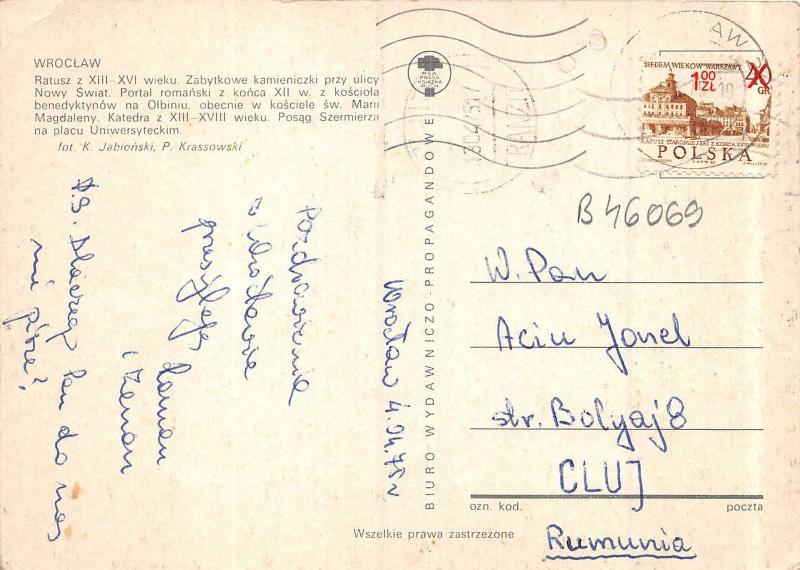 WROCŁAW
Ratusz z XIII-XVI wieku. Zabytkowe kamieniczki przy ulicy
Nowy Świat. Portal romański z końca XII w. z kościoła
benedyktynów na Ołbiniu, obecnie w kościele św. Marii
Magdaleny. Katedra z XIII-XVIII wieku. Posąg Szermierza
na placu Uniwersyteckim.
fot. K. Jabłoński, P. Krassowski
Pozdrowienia
z Wrocławia
przesyłają
i Zenon
P.S. Dlaczego Pan do nas
nie pisze?
Wrocław 4.04.75r
BIURO WYDAWNICZO-PROPAGANDOWE
RSW
PRASA
KSIĄŻKA
RUCH
SIEDEM WIEKÓW WARSZAWY
1,00 ZŁ
40 GR
RATUSZ STAROMIEJSKI Z KOŃCA XVIII WIEKU
POLSKA
B 46069
W. Pan
Aciu Jonel
str. Bolyaj 8
CLUJ
ozn. kod. poczta
Rumunia
Wszelkie prawa zastrzeżone